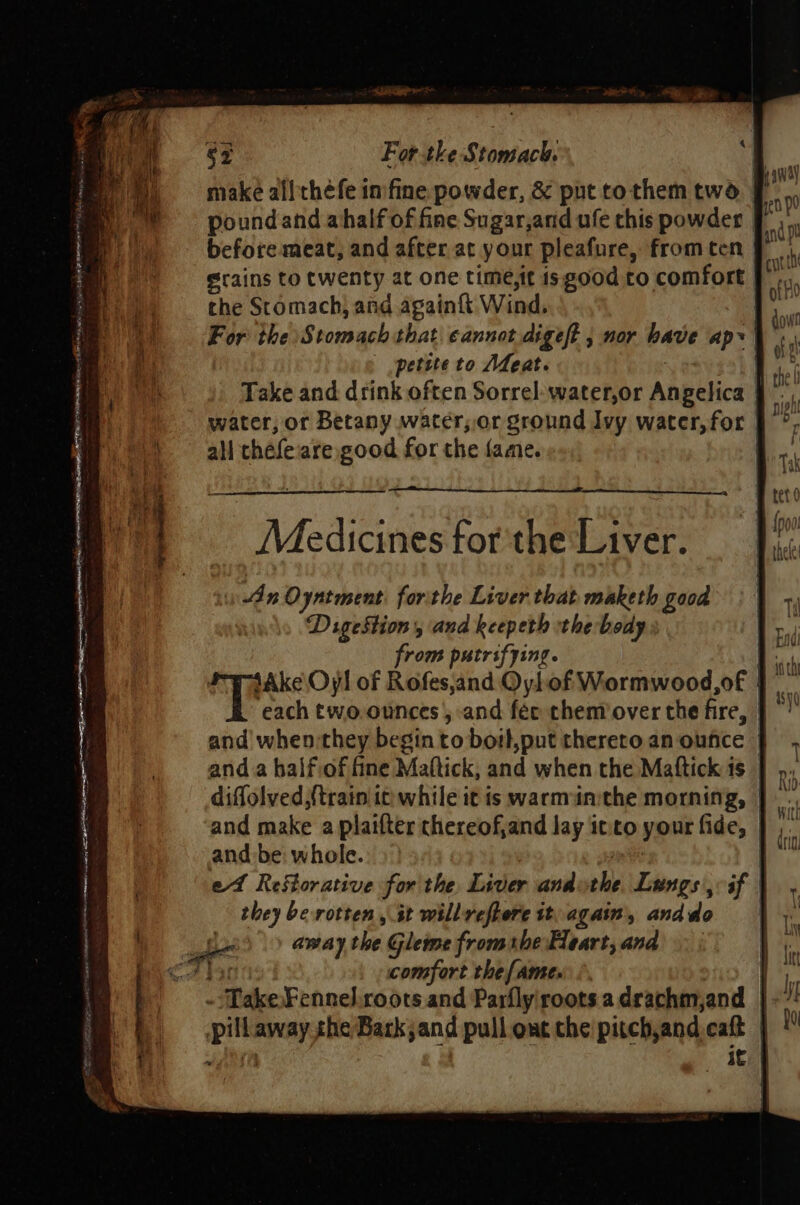 52 For the Stomach.
make all theſe in fine powder, & put to them two
pound and a half of fine Sugar, and uſe this powder
before meat, and after at your pleaſure, from ten
grains to twenty at one time, it is good to comfort
the Stomach, and againſt Wind.
For the Stomach that cannot digeſt, nor have ap-
petite to Meat.
Take and drink often Sorrel water, or Angelica
water, or Betany water, or ground Ivy water, for
all theſe are good for the ſame.
Medicines for the Liver.
An Oyntment for the Liver that maketh good
Digeſtion, and keepeth the body
from putrifying.
TAke Oyl of Roſes, and Oyl of Wormwood, of
each two ounces, and ſet them over the fire,
and when they begin to boil, put thereto an ounce
and a half of fine Maſtick, and when the Maſtick is
diſſolved, ſtrain it while it is warm in the morning,
and make a plaiſter thereof, and lay it to your ſide,
and be whole.
A Reſtorative for the Liver and the Lungs, if
they be rotten, it will reſtore it again, and do
away the Gleime from the Heart, and
comfort the ſame.
Take Fennel roots and Parſly roots a drachm, and
pill away the Bark, and pull out the pitch, and caſt
it